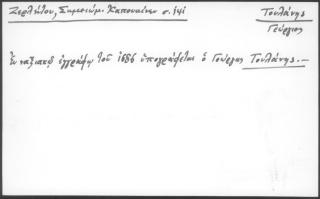 Ζερλέντου, Σημειώμ. Καπουκίνων σ. 141
Τουλάνης
Γεώργιος
Ἐν ναξιακῷ ἐγγράφῳ τοῦ 1686 ὑπογράφεται ὁ Γεώργης Τουλάνης.—